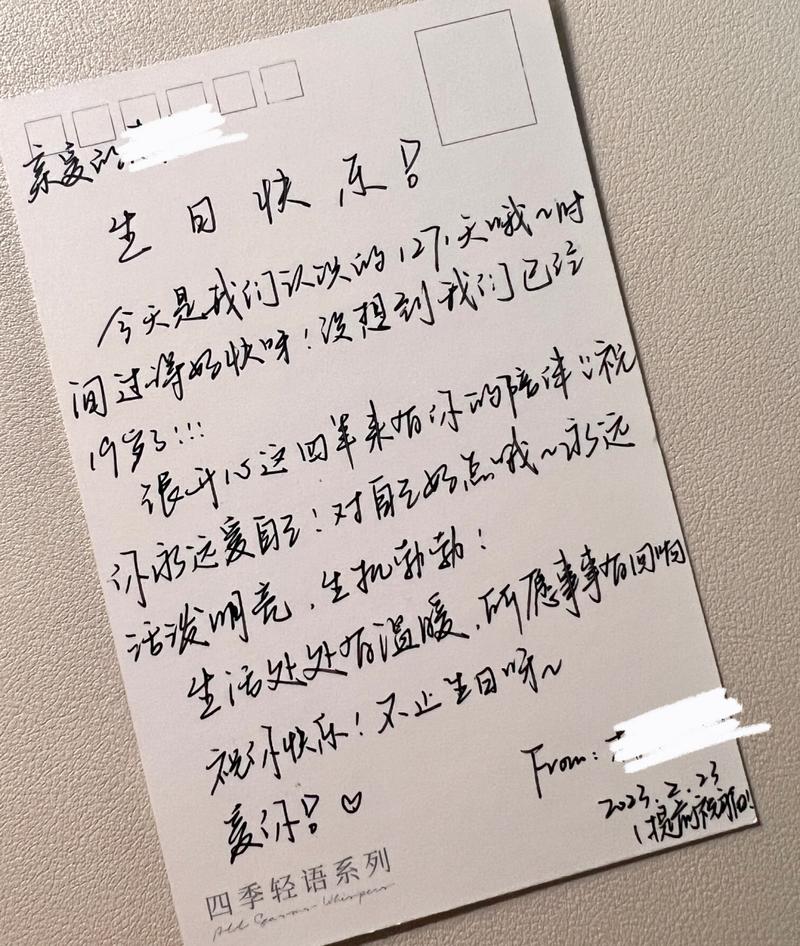 亲爱的
生日快乐!
今天是我们认识的1271天哦~时
间过得好快呀!没想到我们已经
19岁了!!!
很开心这四年来有你的陪伴!!祝
你永远爱自己!对自己好点哦~永远
活泼明亮,生机勃勃!
生活处处有温暖,所愿事事有回响
祝你快乐!不止生日呀~
爱你!♡
From:
2023.2.23
(提前祝福)
四季轻语系列
All Season Whispers